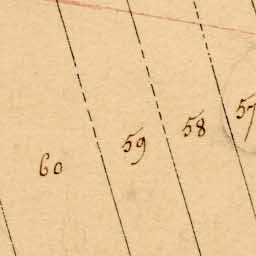 60 59 58 57